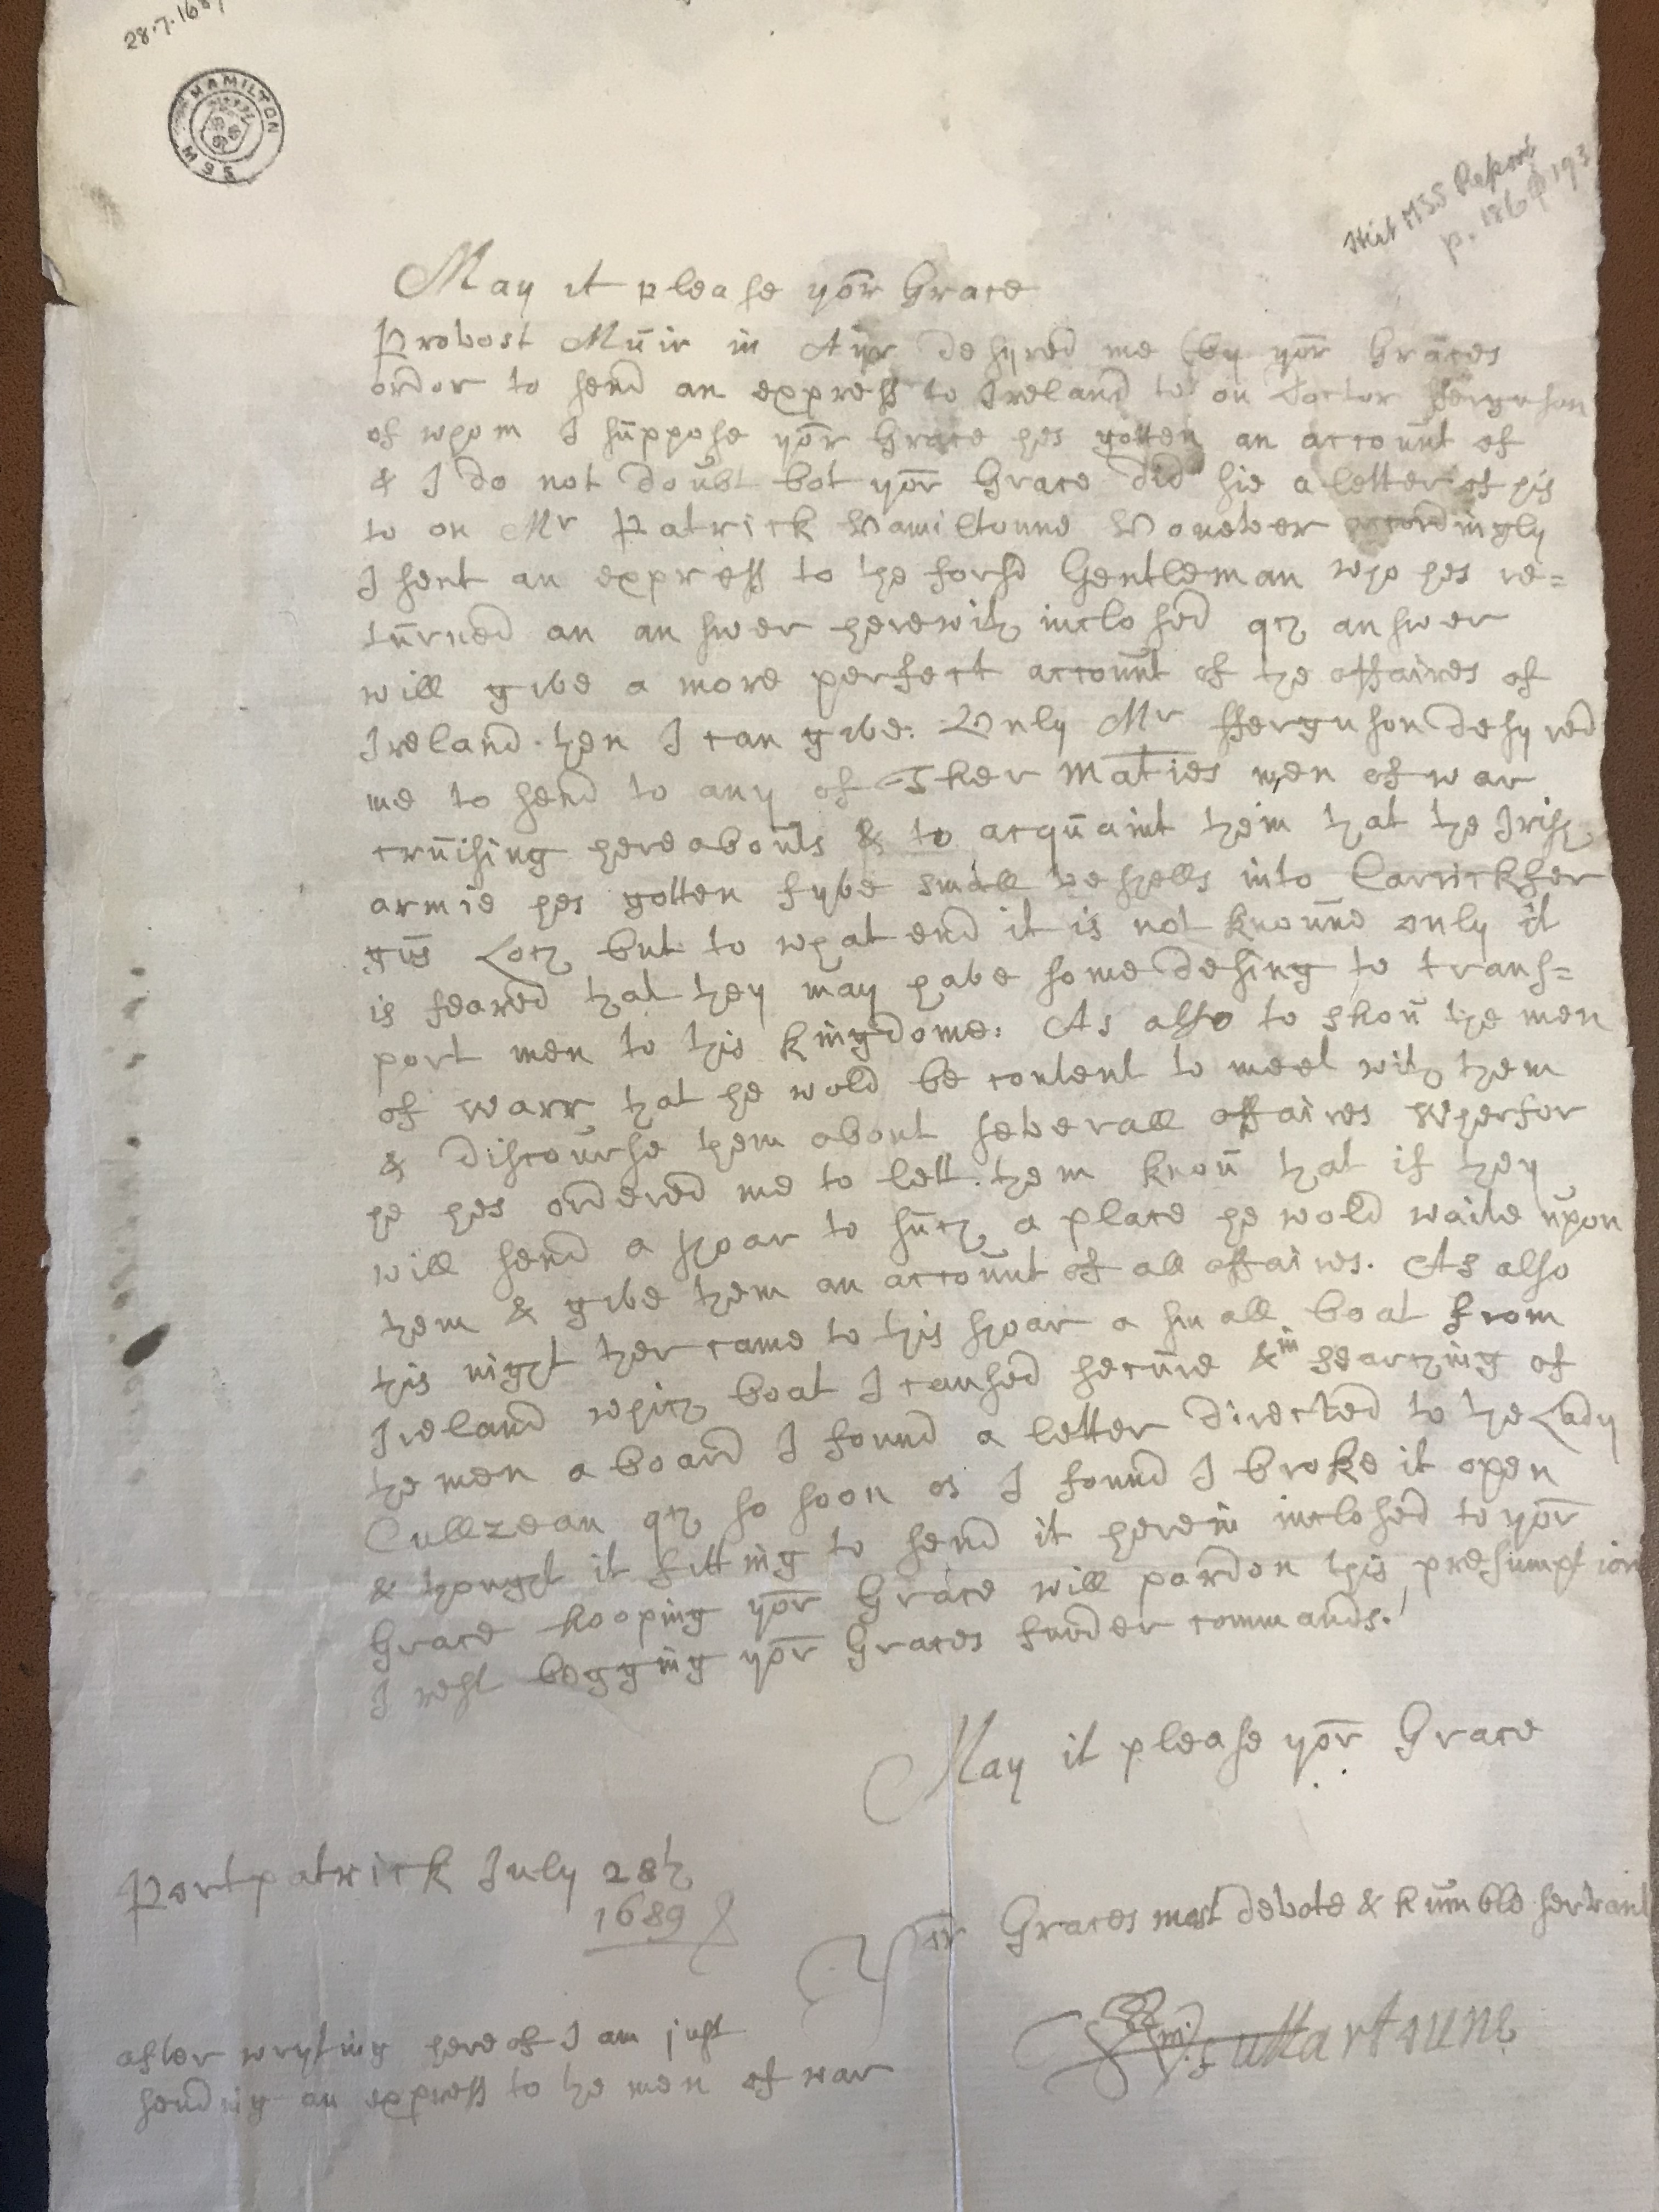 28.7.168
HAMILTON MSS
Hist MSS Report
p. 186 193
May it please yor Grace
Provost Muir in Aijr desyred me (by yor Graces
order to send an express to Ireland to on Doctor fferguson
of whom I suppose yor Grace hes gotten an account of
& I do not doubt bot yor Grace did sie a letter of his
to on Mr Patrick Hamiltoune Houever accordingly
I sent an express to the forsd Gentleman who hes re=
turned an answer herewith inclosed qch answer
will give a more perfect account of the affaires of
Ireland then I can give: Only Mr fferguson desyred
me to send to any of ther Maties men of war
cruising hereabouts & to acquaint them that the Irish
armie hes gotten fyve small veshells into Carrickfer
gus Loch but to what end it is not knoune only it
is feared that they may have some desing to trans=
port men to this kingdome: As also to shou the men
of warr that he wold be content to meet with them
& discourse them about severall affaires wherfor
he hes ordered me to lett them knou that if they
will send a shoar to such a place he wold waite upon
them & give them an account of all affaires. As also
this night ther came to this shoar a small boat from
Ireland which boat I caused secure & in searching of
the men aboard I found a letter directed to the Lady
Cullzean qch so soon as I found I broke it open
& thought it fitting to send it herein inclosed to yor
Grace hooping yor Grace will pardon this presumption
I rest begging yor Graces furder commands.
May it please yor Grace
Portpatrick July 28th
1689
Yor Graces most devote & humble servant
after wryting hereof I am just
sending an express to the men of war